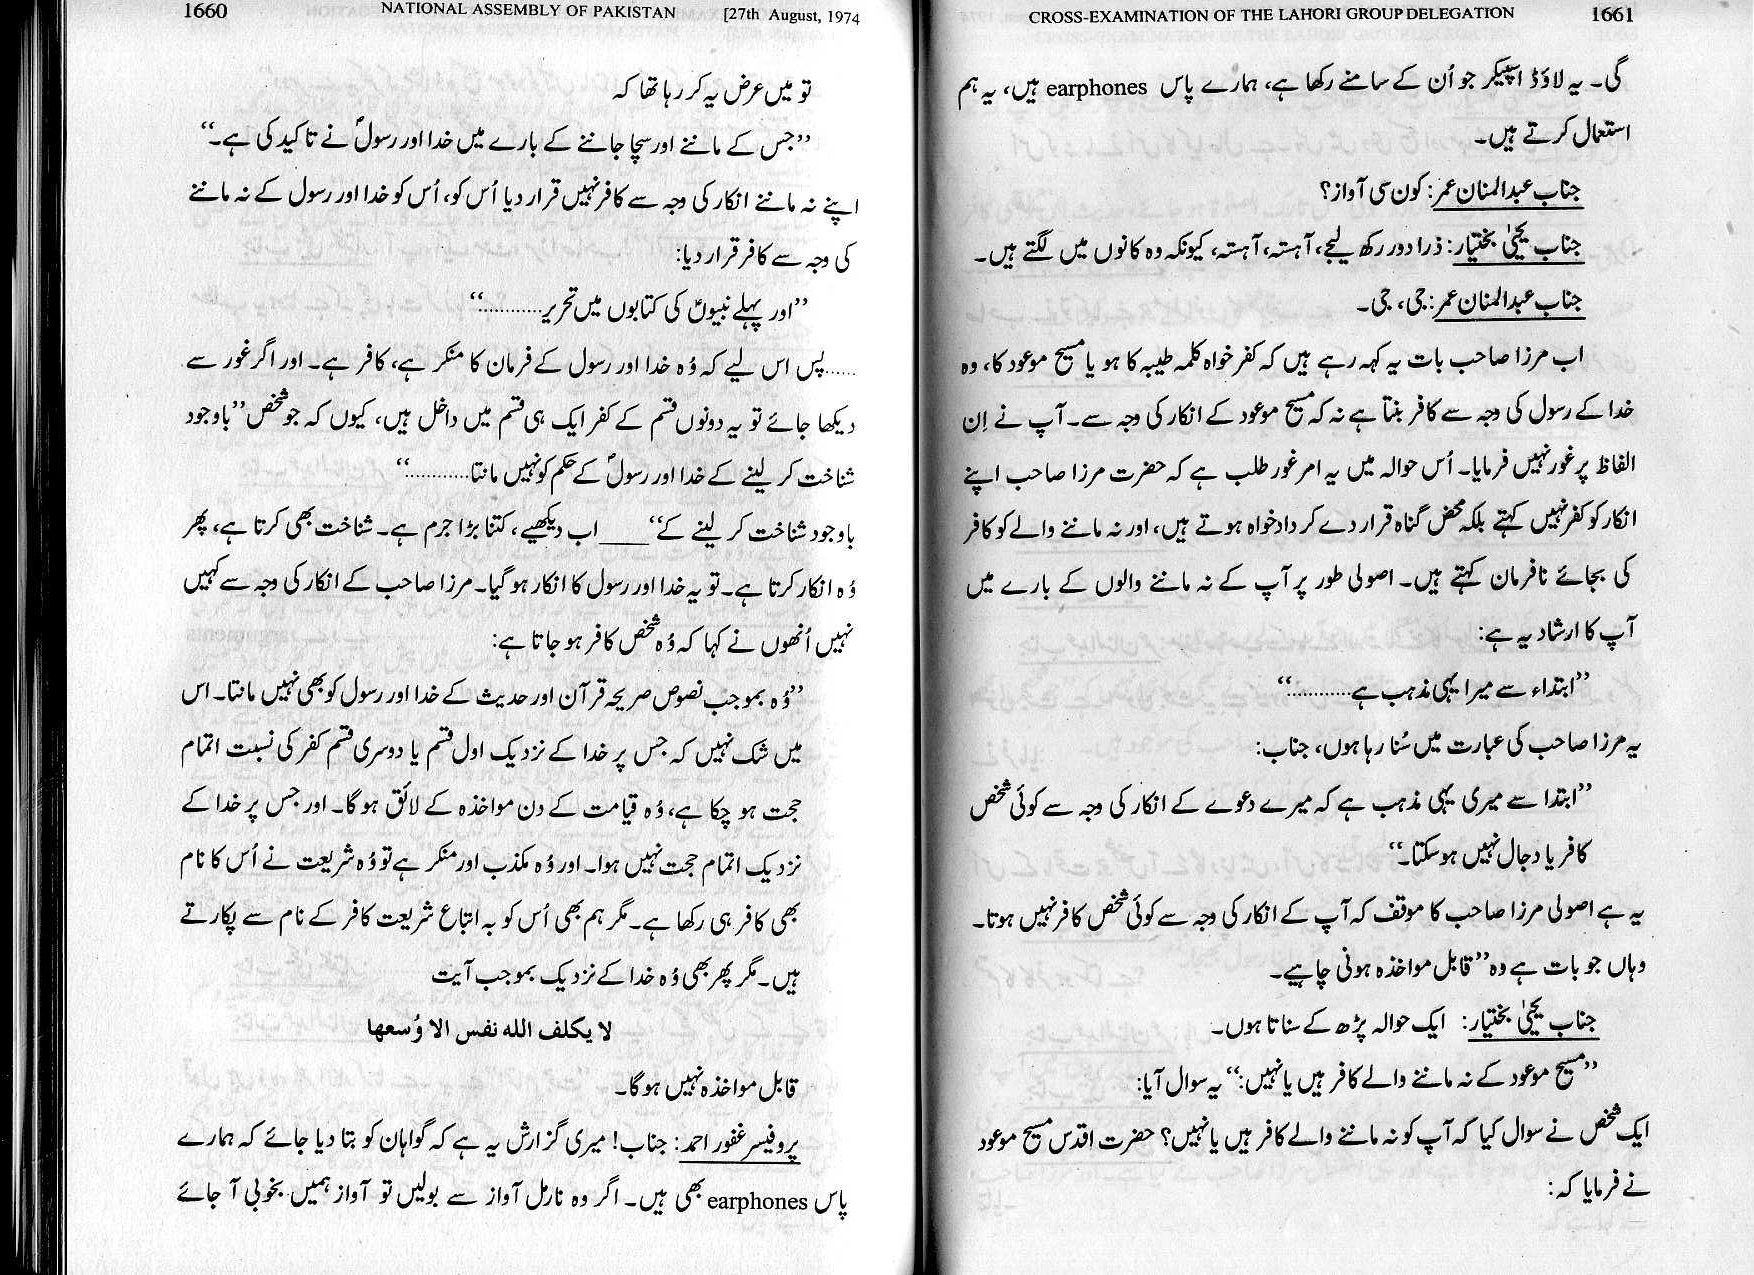 1660 NATIONAL ASSEMBLY OF PAKISTAN [27th August, 1974
تو میں عرض یہ کر رہا تھا کہ
”جس کے ماننے اور سچا جاننے کے بارے میں خدا اور رسولؐ نے تاکید کی ہے۔“
اپنے نہ ماننے انکار کی وجہ سے کافر نہیں قرار دیا اُس کو، اُس کو خدا اور رسول کے نہ ماننے
کی وجہ سے کافر قرار دیا:
”اور پہلے نبیوںؑ کی کتابوں میں تحریر............“
......پس اس لیے کہ وُہ خدا اور رسول کے فرمان کا منکر ہے، کافر ہے۔ اور اگر غور سے
دیکھا جائے تو یہ دونوں قسم کے کفر ایک ہی قسم میں داخل ہیں، کیوں کہ جو شخص ”باوجود
شناخت کر لینے کے خدا اور رسولؐ کے حکم کو نہیں مانتا............“
باوجود شناخت کر لینے کے“____ اب دیکھیے، کتنا بڑا جرم ہے۔ شناخت بھی کرتا ہے، پھر
وُہ انکار کرتا ہے۔ تو یہ خدا اور رسول کا انکار ہو گیا۔ مرزا صاحب کے انکار کی وجہ سے کہیں
نہیں اُنھوں نے کہا کہ وُہ شخص کافر ہو جاتا ہے:
”وُہ بموجب نصوص صریحہ قرآن اور حدیث کے خدا اور رسول کو بھی نہیں مانتا۔ اس
میں شک نہیں کہ جس پر خدا کے نزدیک اول قسم یا دوسری قسم کفر کی نسبت اتمام
حجت ہو چکا ہے، وُہ قیامت کے دن مواخذہ کے لائق ہو گا۔ اور جس پر خدا کے
نزدیک اتمام حجت نہیں ہوا۔ اور وُہ مکذب اور منکر ہے تو وُہ شریعت نے اُس کا نام
بھی کافر ہی رکھا ہے۔ مگر ہم بھی اُس کو بہ اتباع شریعت کافر کے نام سے پکارتے
ہیں۔ مگر پھر بھی وُہ خدا کے نزدیک بموجب آیت
لا یکلف الله نفس الا وُسعها
قابل مواخذہ نہیں ہو گا۔
پروفیسر غفور احمد: جناب! میری گزارش یہ ہے کہ گواہان کو بتا دیا جائے کہ ہمارے
پاس earphones بھی ہیں۔ اگر وہ نارمل آواز سے بولیں تو آواز ہمیں بخوبی آ جائے
CROSS-EXAMINATION OF THE LAHORI GROUP DELEGATION 1661
گی۔ یہ لاؤڈ اسپیکر جو اُن کے سامنے رکھا ہے، ہمارے پاس earphones ہیں، یہ ہم
استعمال کرتے ہیں۔
جناب عبدالمنان عمر: کون سی آواز؟
جناب یحییٰ بختیار: ذرا دور رکھ لیجے، آہستہ، آہستہ، کیونکہ وہ کانوں میں لگتے ہیں۔
جناب عبدالمنان عمر: جی، جی۔
اب مرزا صاحب بات یہ کہہ رہے ہیں کہ کفر خواہ کلمہ طیبہ کا ہو یا مسیح موعود کا، وہ
خدا کے رسول کی وجہ سے کافر بنتا ہے نہ کہ مسیح موعود کے انکار کی وجہ سے۔ آپ نے اِن
الفاظ پر غور نہیں فرمایا۔ اُس حوالہ میں یہ امر غور طلب ہے کہ حضرت مرزا صاحب اپنے
انکار کو کفر نہیں کہتے بلکہ محض گناہ قرار دے کر داد خواہ ہوتے ہیں، اور نہ ماننے والے کو کافر
کی بجائے نافرمان کہتے ہیں۔ اصولی طور پر آپ کے نہ ماننے والوں کے بارے میں
آپ کا ارشاد یہ ہے:
”ابتداء سے میرا یہی مذہب ہے............“
یہ مرزا صاحب کی عبارت میں سُنا رہا ہوں، جناب:
”ابتدا سے میری یہی مذہب ہے کہ میرے دعوے کے انکار کی وجہ سے کوئی شخص
کافر یا دجال نہیں ہو سکتا۔“
یہ ہے اصولی مرزا صاحب کا موقف کہ آپ کے انکار کی وجہ سے کوئی شخص کافر نہیں ہوتا۔
وہاں جو بات ہے وہ ”قابل مواخذہ ہونی چاہیے۔
جناب یحییٰ بختیار: ایک حوالہ پڑھ کے سناتا ہوں۔
”مسیح موعود کے نہ ماننے والے کافر ہیں یا نہیں:“ یہ سوال آیا:
ایک شخص نے سوال کیا کہ آپ کو نہ ماننے والے کافر ہیں یا نہیں؟ حضرت اقدس مسیح موعود
نے فرمایا کہ: